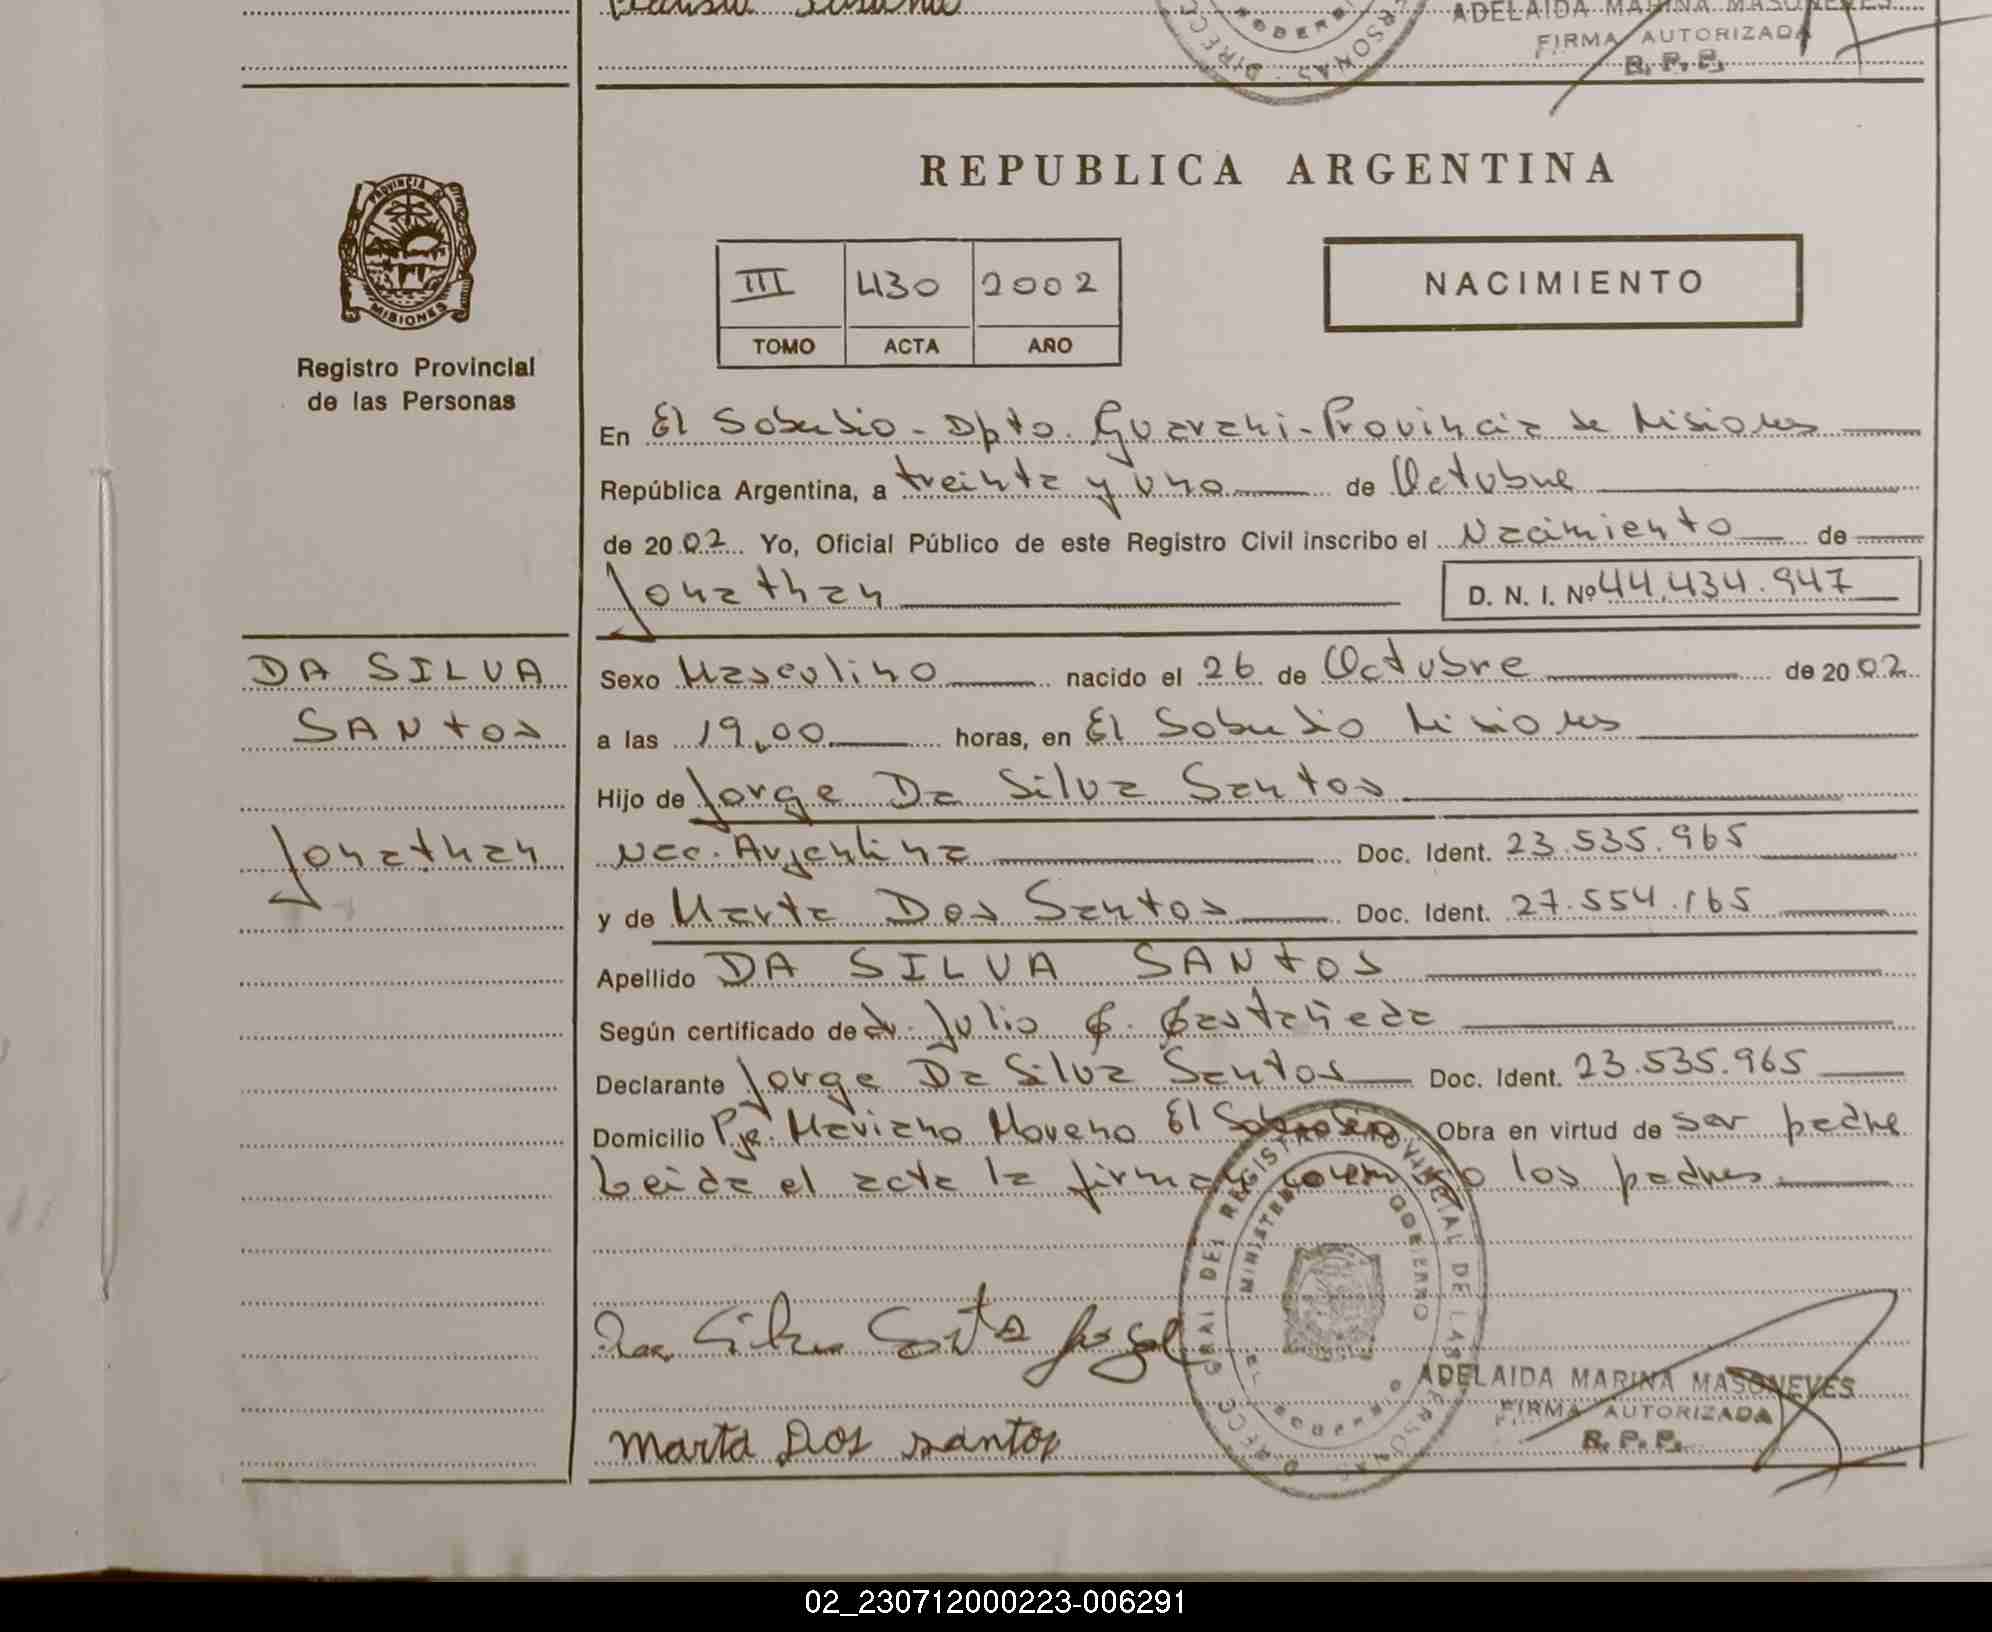 ADELAIDA MARINA MASONEVES
FIRMA AUTORIZADA
R. P. P.
PROVINCIA DE
MISIONES
Registro Provincial
de las Personas
REPUBLICA ARGENTINA
III 430 2002
TOMO ACTA AÑO
NACIMIENTO
En El Soberbio - Dpto. Guarani - Provincia de Misiones
República Argentina, a treinta y uno de Octubre
de 2002 Yo, Oficial Público de este Registro Civil inscribo el Nacimiento de
Jonathan D. N. I. Nº 44.434.947
DA SILVA
SANtos
Jonathan
Sexo Masculino nacido el 26 de Octubre de 2002
a las 19,00 horas, en El Soberbio Misiones
Hijo de Jorge Da Silva Santos
Nac. Argentina Doc. Ident. 23.535.965
y de Marta Dos Santos Doc. Ident. 27.554.165
Apellido DA SILVA SANtos
Según certificado de dr. Julio C. Castañeda
Declarante Jorge Da Silva Santos Doc. Ident. 23.535.965
Domicilio Pje. Mariano Moreno El Soberbio Obra en virtud de ser padre
Leida el acta la firman conmigo los padres
Da Silva Santos Jorge
Marta Dos santos
ADELAIDA MARINA MASONEVES
FIRMA AUTORIZADA
R. P. P.
02_230712000223-006291